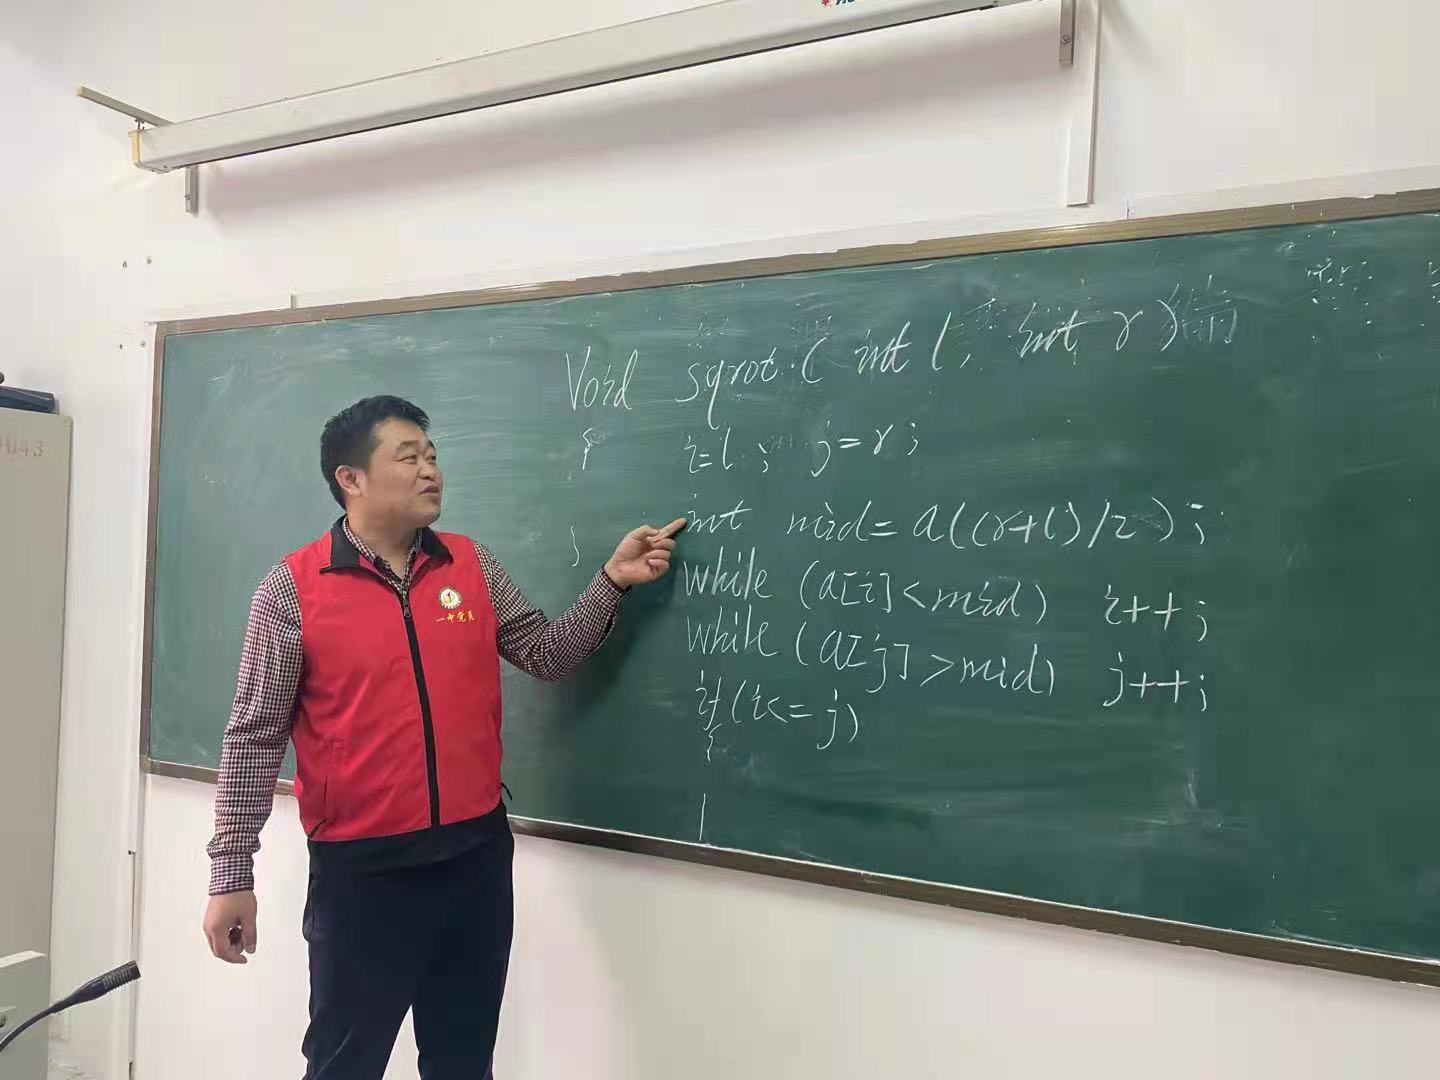 Void sqrot ( int l, int r )
{ i=l ; j=r ;
int mid = a((r+l)/2) ;
while (a[i]<mid) i++ ;
while (a[j]>mid) j++ ;
if (i<=j)
{
}
一中党员